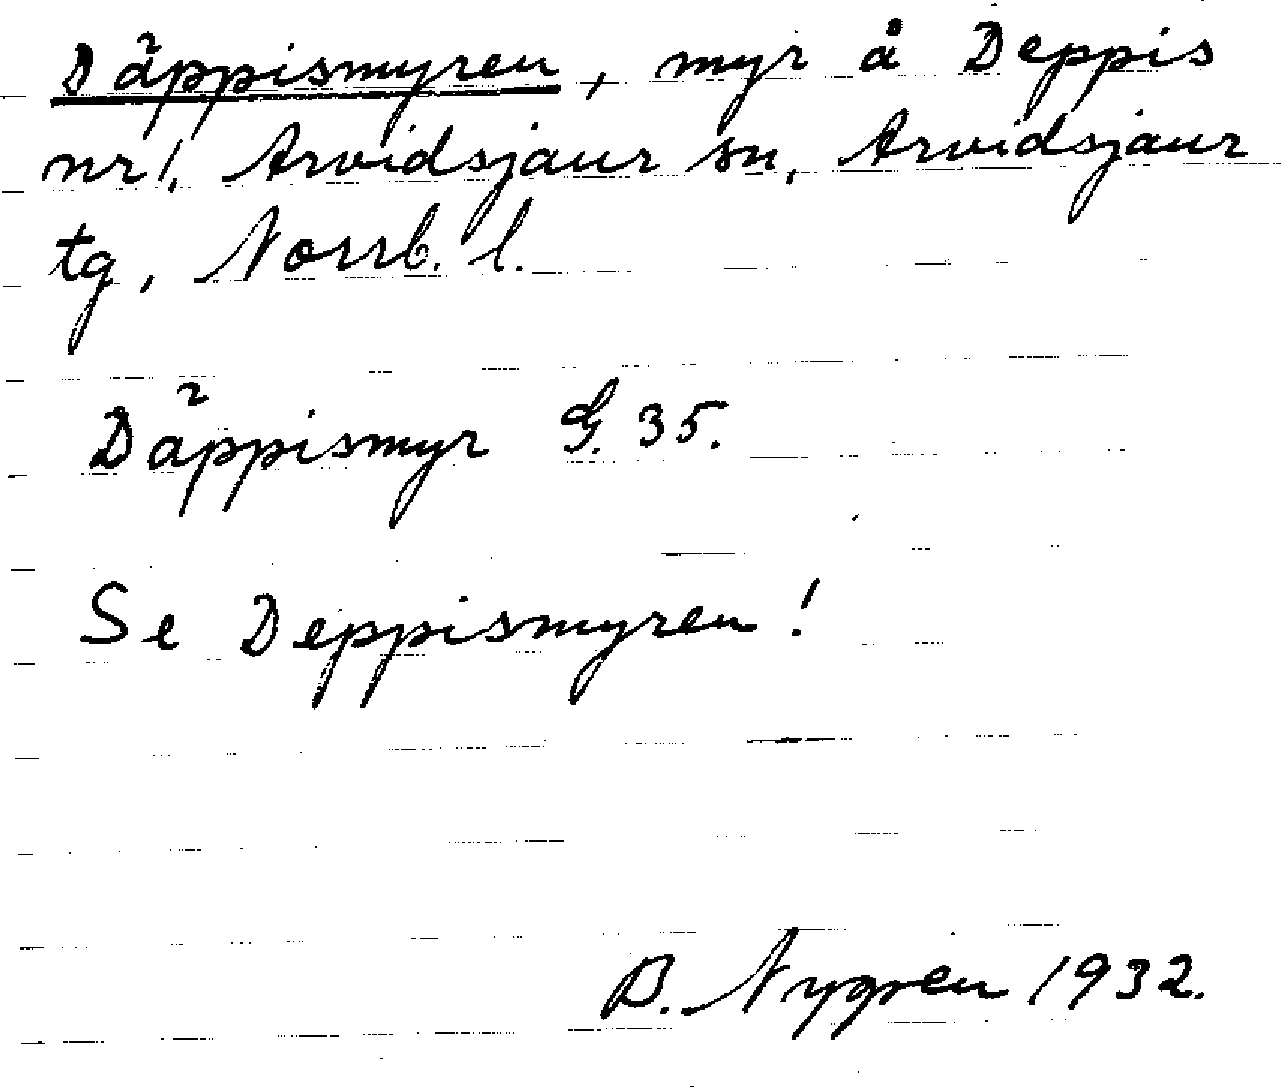 Däppismyren, myr å Deppis
nr 1, Arvidsjaur sn, Arvidsjaur
tg, Norrb. l.
Däppismyr G. 35.
Se Deppismyren!
B. Nygren 1932.